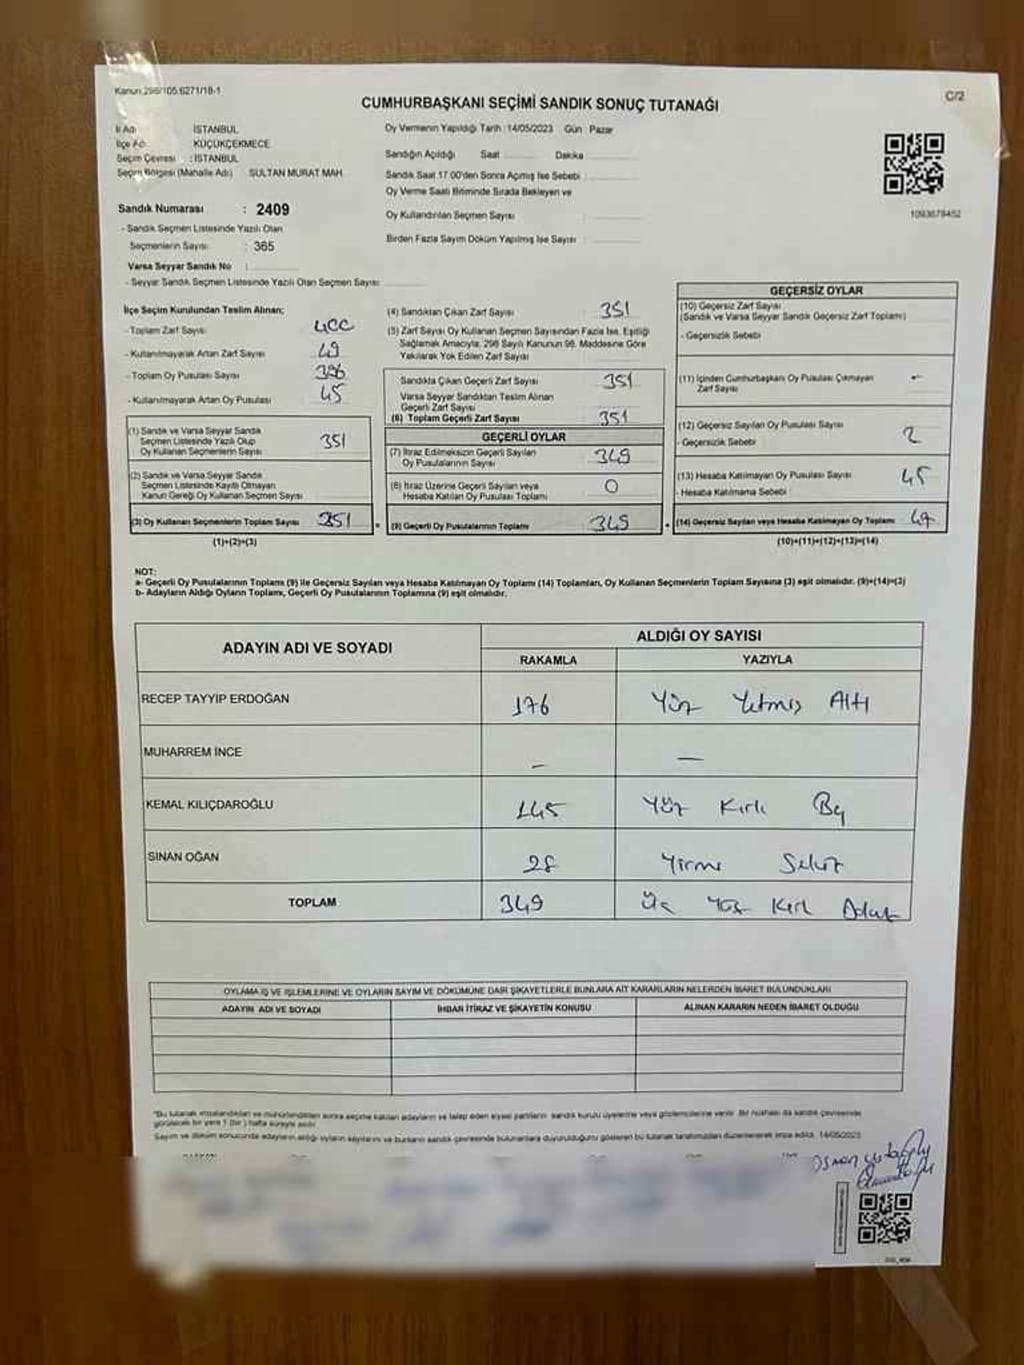 Kanun 298/105.6271/18-1
C/2
CUMHURBAŞKANI SEÇİMİ SANDIK SONUÇ TUTANAĞI
İl Adı İSTANBUL
İlçe Adı KÜÇÜKÇEKMECE
Seçim Çevresi : İSTANBUL
Seçim Bölgesi (Mahalle Adı) SULTAN MURAT MAH.
Oy Vermenin Yapıldığı Tarih : 14/05/2023 Gün Pazar
Sandığın Açıldığı Saat Dakika
Sandık Saat 17.00'den Sonra Açılmış İse Sebebi :
Oy Verme Saati Bitiminde Sırada Bekleyen ve
Oy Kullandırılan Seçmen Sayısı :
Birden Fazla Sayım Döküm Yapılmış İse Sayısı :
1093679452
Sandık Numarası : 2409
- Sandık Seçmen Listesinde Yazılı Olan
Seçmenlerin Sayısı : 365
Varsa Seyyar Sandık No :
- Seyyar Sandık Seçmen Listesinde Yazılı Olan Seçmen Sayısı :
İlçe Seçim Kurulundan Teslim Alınan;
- Toplam Zarf Sayısı 400
- Kullanılmayarak Artan Zarf Sayısı 49
- Toplam Oy Pusulası Sayısı 396
- Kullanılmayarak Artan Oy Pusulası 45
(1) Sandık ve Varsa Seyyar Sandık
Seçmen Listesinde Yazılı Olup
Oy Kullanan Seçmenlerin Sayısı 351
(2) Sandık ve Varsa Seyyar Sandık
Seçmen Listesinde Kayıtlı Olmayan
Kanun Gereği Oy Kullanan Seçmen Sayısı
(3) Oy Kullanan Seçmenlerin Toplam Sayısı 351
(1)+(2)=(3)
(4) Sandıktan Çıkan Zarf Sayısı 351
(5) Zarf Sayısı Oy Kullanan Seçmen Sayısından Fazla İse, Eşitliği
Sağlamak Amacıyla, 298 Sayılı Kanunun 98. Maddesine Göre
Yakılarak Yok Edilen Zarf Sayısı
Sandıkta Çıkan Geçerli Zarf Sayısı 351
Varsa Seyyar Sandıktan Teslim Alınan
Geçerli Zarf Sayısı
(6) Toplam Geçerli Zarf Sayısı 351
GEÇERLİ OYLAR
(7) İtiraz Edilmeksizin Geçerli Sayılan
Oy Pusulalarının Sayısı 349
(8) İtiraz Üzerine Geçerli Sayılan veya
Hesaba Katılan Oy Pusulası Toplamı 0
(9) Geçerli Oy Pusulalarının Toplamı 349
GEÇERSİZ OYLAR
(10) Geçersiz Zarf Sayısı
(Sandık ve Varsa Seyyar Sandık Geçersiz Zarf Toplamı)
- Geçersizlik Sebebi
(11) İçinden Cumhurbaşkanı Oy Pusulası Çıkmayan
Zarf Sayısı -
(12) Geçersiz Sayılan Oy Pusulası Sayısı
- Geçersizlik Sebebi 2
(13) Hesaba Katılmayan Oy Pusulası Sayısı 45
- Hesaba Katılmama Sebebi
(14) Geçersiz Sayılan veya Hesaba Katılmayan Oy Toplamı 47
(10)+(11)+(12)+(13)=(14)
NOT:
a- Geçerli Oy Pusulalarının Toplamı (9) ile Geçersiz Sayılan veya Hesaba Katılmayan Oy Toplamı (14) Toplamları, Oy Kullanan Seçmenlerin Toplam Sayısına (3) eşit olmalıdır. (9)+(14)=(3)
b- Adayların Aldığı Oyların Toplamı, Geçerli Oy Pusulalarının Toplamına (9) eşit olmalıdır.
ADAYIN ADI VE SOYADI
ALDIĞI OY SAYISI
RAKAMLA YAZIYLA
RECEP TAYYİP ERDOĞAN 176 Yüz Yetmiş Altı
MUHARREM İNCE – –
KEMAL KILIÇDAROĞLU 145 Yüz Kırk Beş
SİNAN OĞAN 28 Yirmi Sekiz
TOPLAM 349 Üç Yüz Kırk Dokuz
OYLAMA İŞ VE İŞLEMLERİNE VE OYLARIN SAYIM VE DÖKÜMÜNE DAİR ŞİKAYETLERLE BUNLARA AİT KARARLARIN NELERDEN İBARET BULUNDUKLARI
ADAYIN ADI VE SOYADI İHBAR İTİRAZ VE ŞİKAYETİN KONUSU ALINAN KARARIN NEDEN İBARET OLDUĞU
"Bu tutanak imzalandıktan ve mühürlendikten sonra seçime katılan adayların ve talep eden siyasi partilerin sandık kurulu üyelerine veya gözlemcilerine verilir. Bir nüshası da sandık çevresinde
görülecek bir yere 1 (bir) hafta süreyle asılır.
Sayım ve döküm sonucunda adayların aldığı oyların sayılarını ve bunların sandık çevresinde bulunanlara duyurulduğunu gösteren bu tutanak tarafımızdan düzenlenerek imza edildi. 14/05/2023
Osman